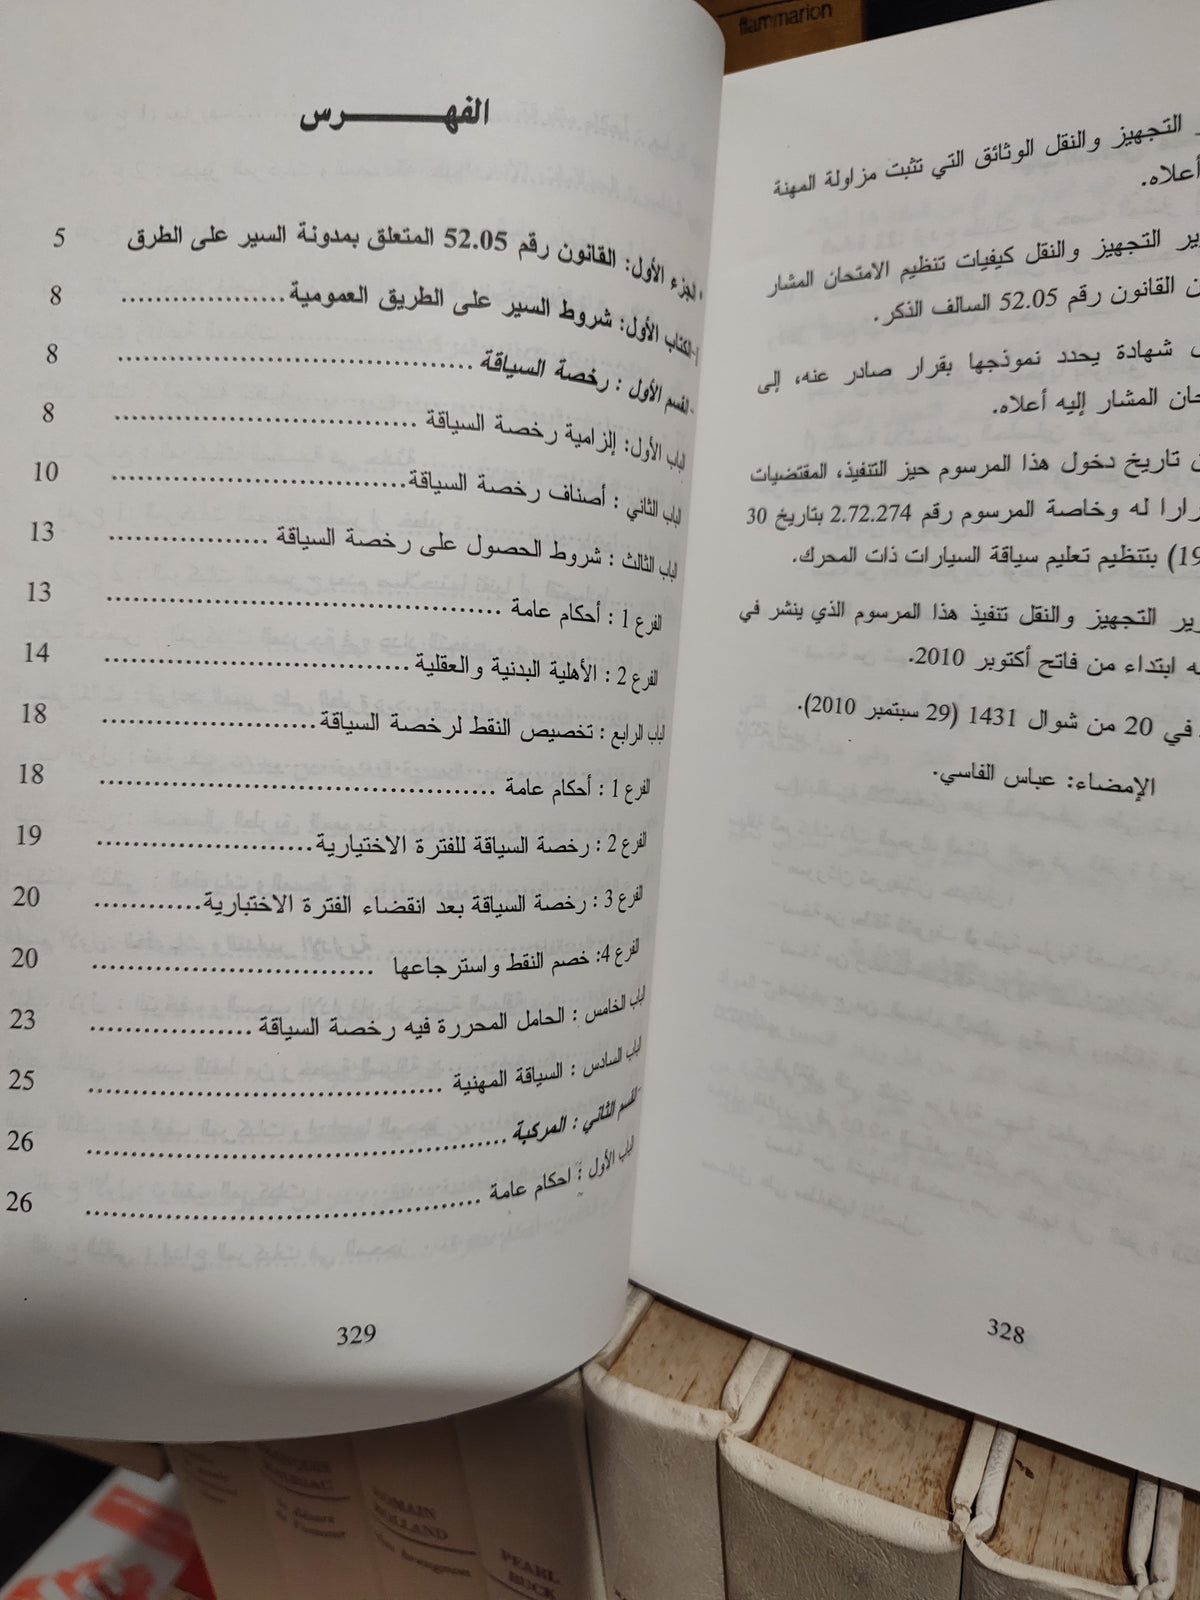 flammarion
التجهيز والنقل الوثائق التي تثبت مزاولة المهنة
أعلاه.
ير التجهيز والنقل كيفيات تنظيم الامتحان المشار
القانون رقم 52.05 السالف الذكر.
شهادة يحدد نموذجها بقرار صادر عنه، إلى
المشار إليه أعلاه.
تاريخ دخول هذا المرسوم حيز التنفيذ، المقتضيات
له وخاصة المرسوم رقم 2.72.274 بتاريخ 30
19) بتنظيم تعليم سياقة السيارات ذات المحرك.
ير التجهيز والنقل تنفيذ هذا المرسوم الذي ينشر في
ه ابتداء من فاتح أكتوبر 2010.
في 20 من شوال 1431 (29 سبتمبر 2010).
الإمضاء: عباس الفاسي.
328
الفهــــــرس
الجزء الأول: القانون رقم 52.05 المتعلق بمدونة السير على الطرق 5
I-الكتاب الأول: شروط السير على الطريق العمومية................. 8
- القسم الأول : رخصة السياقة..................................... 8
الباب الأول: إلزامية رخصة السياقة ............................... 8
الباب الثاني : أصناف رخصة السياقة............................... 10
الباب الثالث : شروط الحصول على رخصة السياقة ................. 13
الفرع 1 : أحكام عامة ......................................... 13
الفرع 2 : الأهلية البدنية والعقلية................................ 14
الباب الرابع : تخصيص النقط لرخصة السياقة...................... 18
الفرع 1 : أحكام عامة ......................................... 18
الفرع 2 : رخصة السياقة للفترة الاختيارية....................... 19
الفرع 3 : رخصة السياقة بعد انقضاء الفترة الاختبارية............ 20
الفرع 4: خصم النقط واسترجاعها ............................. 20
الباب الخامس : الحامل المحررة فيه رخصة السياقة ................. 23
الباب السادس : السياقة المهنية .................................... 25
- القسم الثاني : المركبة............................................ 26
الباب الأول : احكام عامة ......................................... 26
329
ROMAIN
ROLLAND
PEARL
BUCK